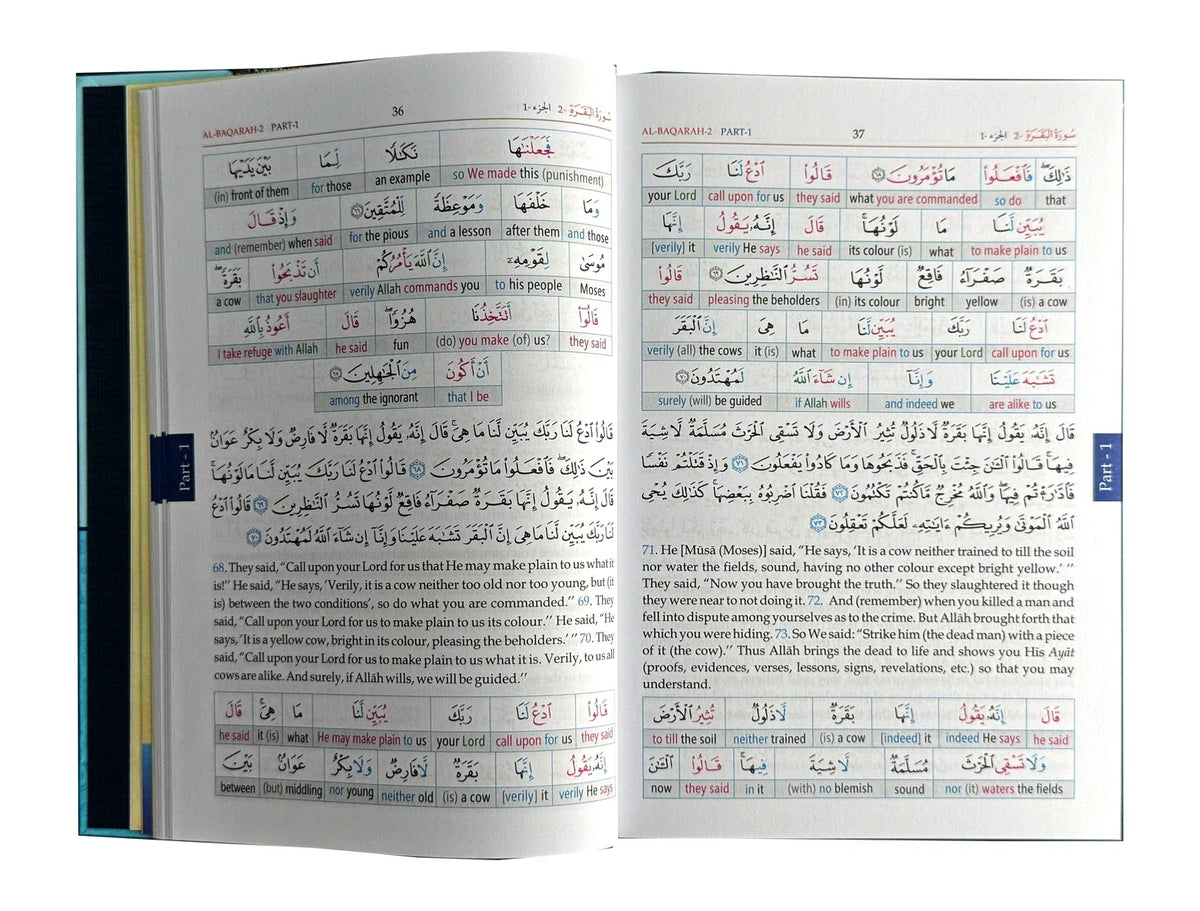 AL-BAQARAH-2 PART-1
36
سُورَةُ البَقَرَةِ -2 الجزء -1
فَجَعَلْنَٰهَا نَكَٰلًا لِّمَا بَيْنَ يَدَيْهَا
so We made this (punishment) an example for those (in) front of them
وَمَا خَلْفَهَا وَمَوْعِظَةً لِّلْمُتَّقِينَ ٦٦ وَإِذْ قَالَ
and those after them and a lesson for the pious and (remember) when said
مُوسَىٰ لِقَوْمِهِۦٓ إِنَّ ٱللَّهَ يَأْمُرُكُمْ أَن تَذْبَحُوا۟ بَقَرَةً ۖ
Moses to his people verily Allah commands you that you slaughter a cow
قَالُوٓا۟ أَتَتَّخِذُنَا هُزُوًا ۖ قَالَ أَعُوذُ بِٱللَّهِ
they said (do) you make (of) us? fun he said I take refuge with Allah
أَنْ أَكُونَ مِنَ ٱلْجَٰهِلِينَ ٦٧
that I be among the ignorant
قَالُوا۟ ٱدْعُ لَنَا رَبَّكَ يُبَيِّن لَّنَا مَا هِىَ ۚ قَالَ إِنَّهُۥ يَقُولُ إِنَّهَا بَقَرَةٌ لَّا فَارِضٌ وَلَا بِكْرٌ عَوَانٌۢ
بَيْنَ ذَٰلِكَ ۖ فَٱفْعَلُوا۟ مَا تُؤْمَرُونَ ٦٨ قَالُوا۟ ٱدْعُ لَنَا رَبَّكَ يُبَيِّن لَّنَا مَا لَوْنُهَا ۚ
قَالَ إِنَّهُۥ يَقُولُ إِنَّهَا بَقَرَةٌ صَفْرَآءُ فَاقِعٌ لَّوْنُهَا تَسُرُّ ٱلنَّٰظِرِينَ ٦٩ قَالُوا۟ ٱدْعُ
لَنَا رَبَّكَ يُبَيِّن لَّنَا مَا هِىَ إِنَّ ٱلْبَقَرَ تَشَٰبَهَ عَلَيْنَا وَإِنَّآ إِن شَآءَ ٱللَّهُ لَمُهْتَدُونَ ٧٠
68. They said, “Call upon your Lord for us that He may make plain to us what it
is!” He said, “He says, ‘Verily, it is a cow neither too old nor too young, but (it
is) between the two conditions’, so do what you are commanded.” 69. They
said, “Call upon your Lord for us to make plain to us its colour.” He said, “He
says, ‘It is a yellow cow, bright in its colour, pleasing the beholders.’ ” 70. They
said, “Call upon your Lord for us to make plain to us what it is. Verily, to us all
cows are alike. And surely, if Allāh wills, we will be guided.”
قَالُوا۟ ٱدْعُ لَنَا رَبَّكَ يُبَيِّن لَّنَا مَا هِىَ ۚ قَالَ
they said call upon for us your Lord He may make plain to us what it (is) he said
إِنَّهُۥ يَقُولُ إِنَّهَا بَقَرَةٌ لَّا فَارِضٌ وَلَا بِكْرٌ عَوَانٌۢ بَيْنَ
verily He says [verily] it (is) a cow neither old nor young (but) middling between
Part - 1
AL-BAQARAH-2 PART-1
37
سُورَةُ البَقَرَةِ -2 الجزء -1
ذَٰلِكَ ۖ فَٱفْعَلُوا۟ مَا تُؤْمَرُونَ ٦٨ قَالُوا۟ ٱدْعُ لَنَا رَبَّكَ
that so do what you are commanded they said call upon for us your Lord
يُبَيِّن لَّنَا مَا لَوْنُهَا ۚ قَالَ إِنَّهُۥ يَقُولُ إِنَّهَا
to make plain to us what its colour (is) he said verily He says [verily] it
بَقَرَةٌ صَفْرَآءُ فَاقِعٌ لَّوْنُهَا تَسُرُّ ٱلنَّٰظِرِينَ ٦٩ قَالُوا۟
(is) a cow yellow bright (in) its colour pleasing the beholders they said
ٱدْعُ لَنَا رَبَّكَ يُبَيِّن لَّنَا مَا هِىَ إِنَّ ٱلْبَقَرَ
call upon for us your Lord to make plain to us what it (is) verily (all) the cows
تَشَٰبَهَ عَلَيْنَا وَإِنَّآ إِن شَآءَ ٱللَّهُ لَمُهْتَدُونَ ٧٠
are alike to us and indeed we if Allah wills surely (will) be guided
قَالَ إِنَّهُۥ يَقُولُ إِنَّهَا بَقَرَةٌ لَّا ذَلُولٌ تُثِيرُ ٱلْأَرْضَ وَلَا تَسْقِى ٱلْحَرْثَ مُسَلَّمَةٌ لَّا شِيَةَ
فِيهَا ۚ قَالُوا۟ ٱلْـَٰٔنَ جِئْتَ بِٱلْحَقِّ ۚ فَذَبَحُوهَا وَمَا كَادُوا۟ يَفْعَلُونَ ٧١ وَإِذْ قَتَلْتُمْ نَفْسًا
فَٱدَّٰرَْٰٔتُمْ فِيهَا ۖ وَٱللَّهُ مُخْرِجٌ مَّا كُنتُمْ تَكْتُمُونَ ٧٢ فَقُلْنَا ٱضْرِبُوهُ بِبَعْضِهَا ۚ كَذَٰلِكَ يُحْىِ
ٱللَّهُ ٱلْمَوْتَىٰ وَيُرِيكُمْ ءَايَٰتِهِۦ لَعَلَّكُمْ تَعْقِلُونَ ٧٣
71. He [Mūsā (Moses)] said, “He says, ‘It is a cow neither trained to till the soil
nor water the fields, sound, having no other colour except bright yellow.’ ”
They said, “Now you have brought the truth.” So they slaughtered it though
they were near to not doing it. 72. And (remember) when you killed a man and
fell into dispute among yourselves as to the crime. But Allāh brought forth that
which you were hiding. 73. So We said: “Strike him (the dead man) with a piece
of it (the cow).” Thus Allāh brings the dead to life and shows you His Ayāt
(proofs, evidences, verses, lessons, signs, revelations, etc.) so that you may
understand.
قَالَ إِنَّهُۥ يَقُولُ إِنَّهَا بَقَرَةٌ لَّا ذَلُولٌ تُثِيرُ ٱلْأَرْضَ
he said indeed He says [indeed] it (is) a cow neither trained to till the soil
وَلَا تَسْقِى ٱلْحَرْثَ مُسَلَّمَةٌ لَّا شِيَةَ فِيهَا ۚ قَالُوا۟ ٱلْـَٰٔنَ
nor (it) waters the fields sound (with) no blemish in it they said now
Part - 1